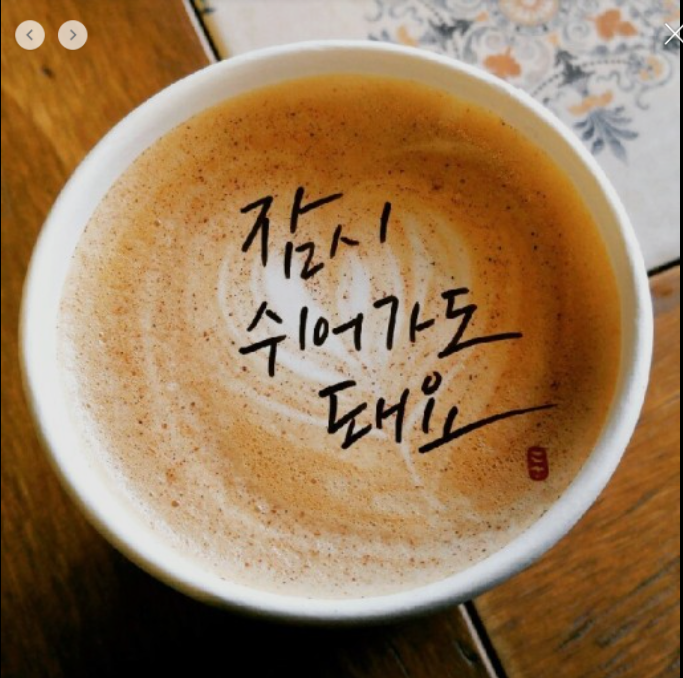 잠시
쉬어가도
돼요